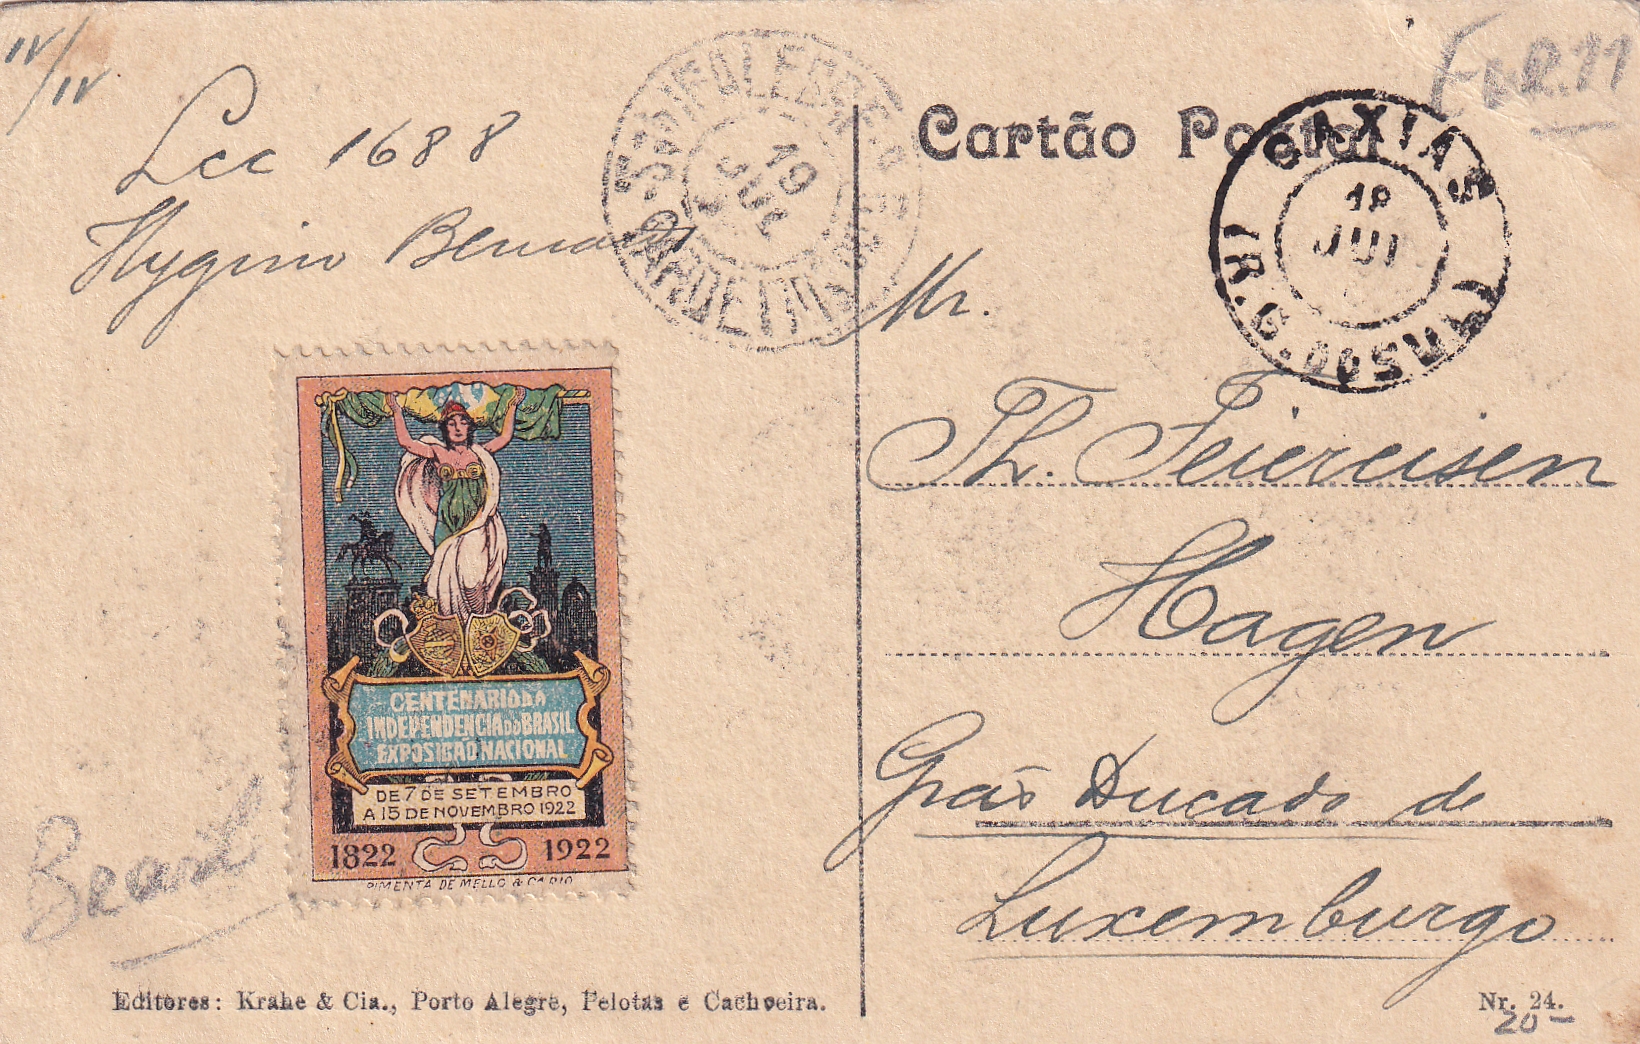 IV/IV
Lcc 1688
Hygino
Cartão Postal
CAXIAS
18
JUL
19
JUL
Mr.
Th. Feiereisen
Hagen
Grão Ducado de
Luxemburgo
CENTENARIO DA
INDEPENDENCIA DO BRASIL
EXPOSIÇÃO NACIONAL
DE 7 DE SETEMBRO
A 15 DE NOVEMBRO 1922
1822 1922
PIMENTA DE MELLO & C. RIO
Brasil
Editores: Krahe & Cia., Porto Alegre, Pelotas e Cachoeira.
Nr. 24.
20—